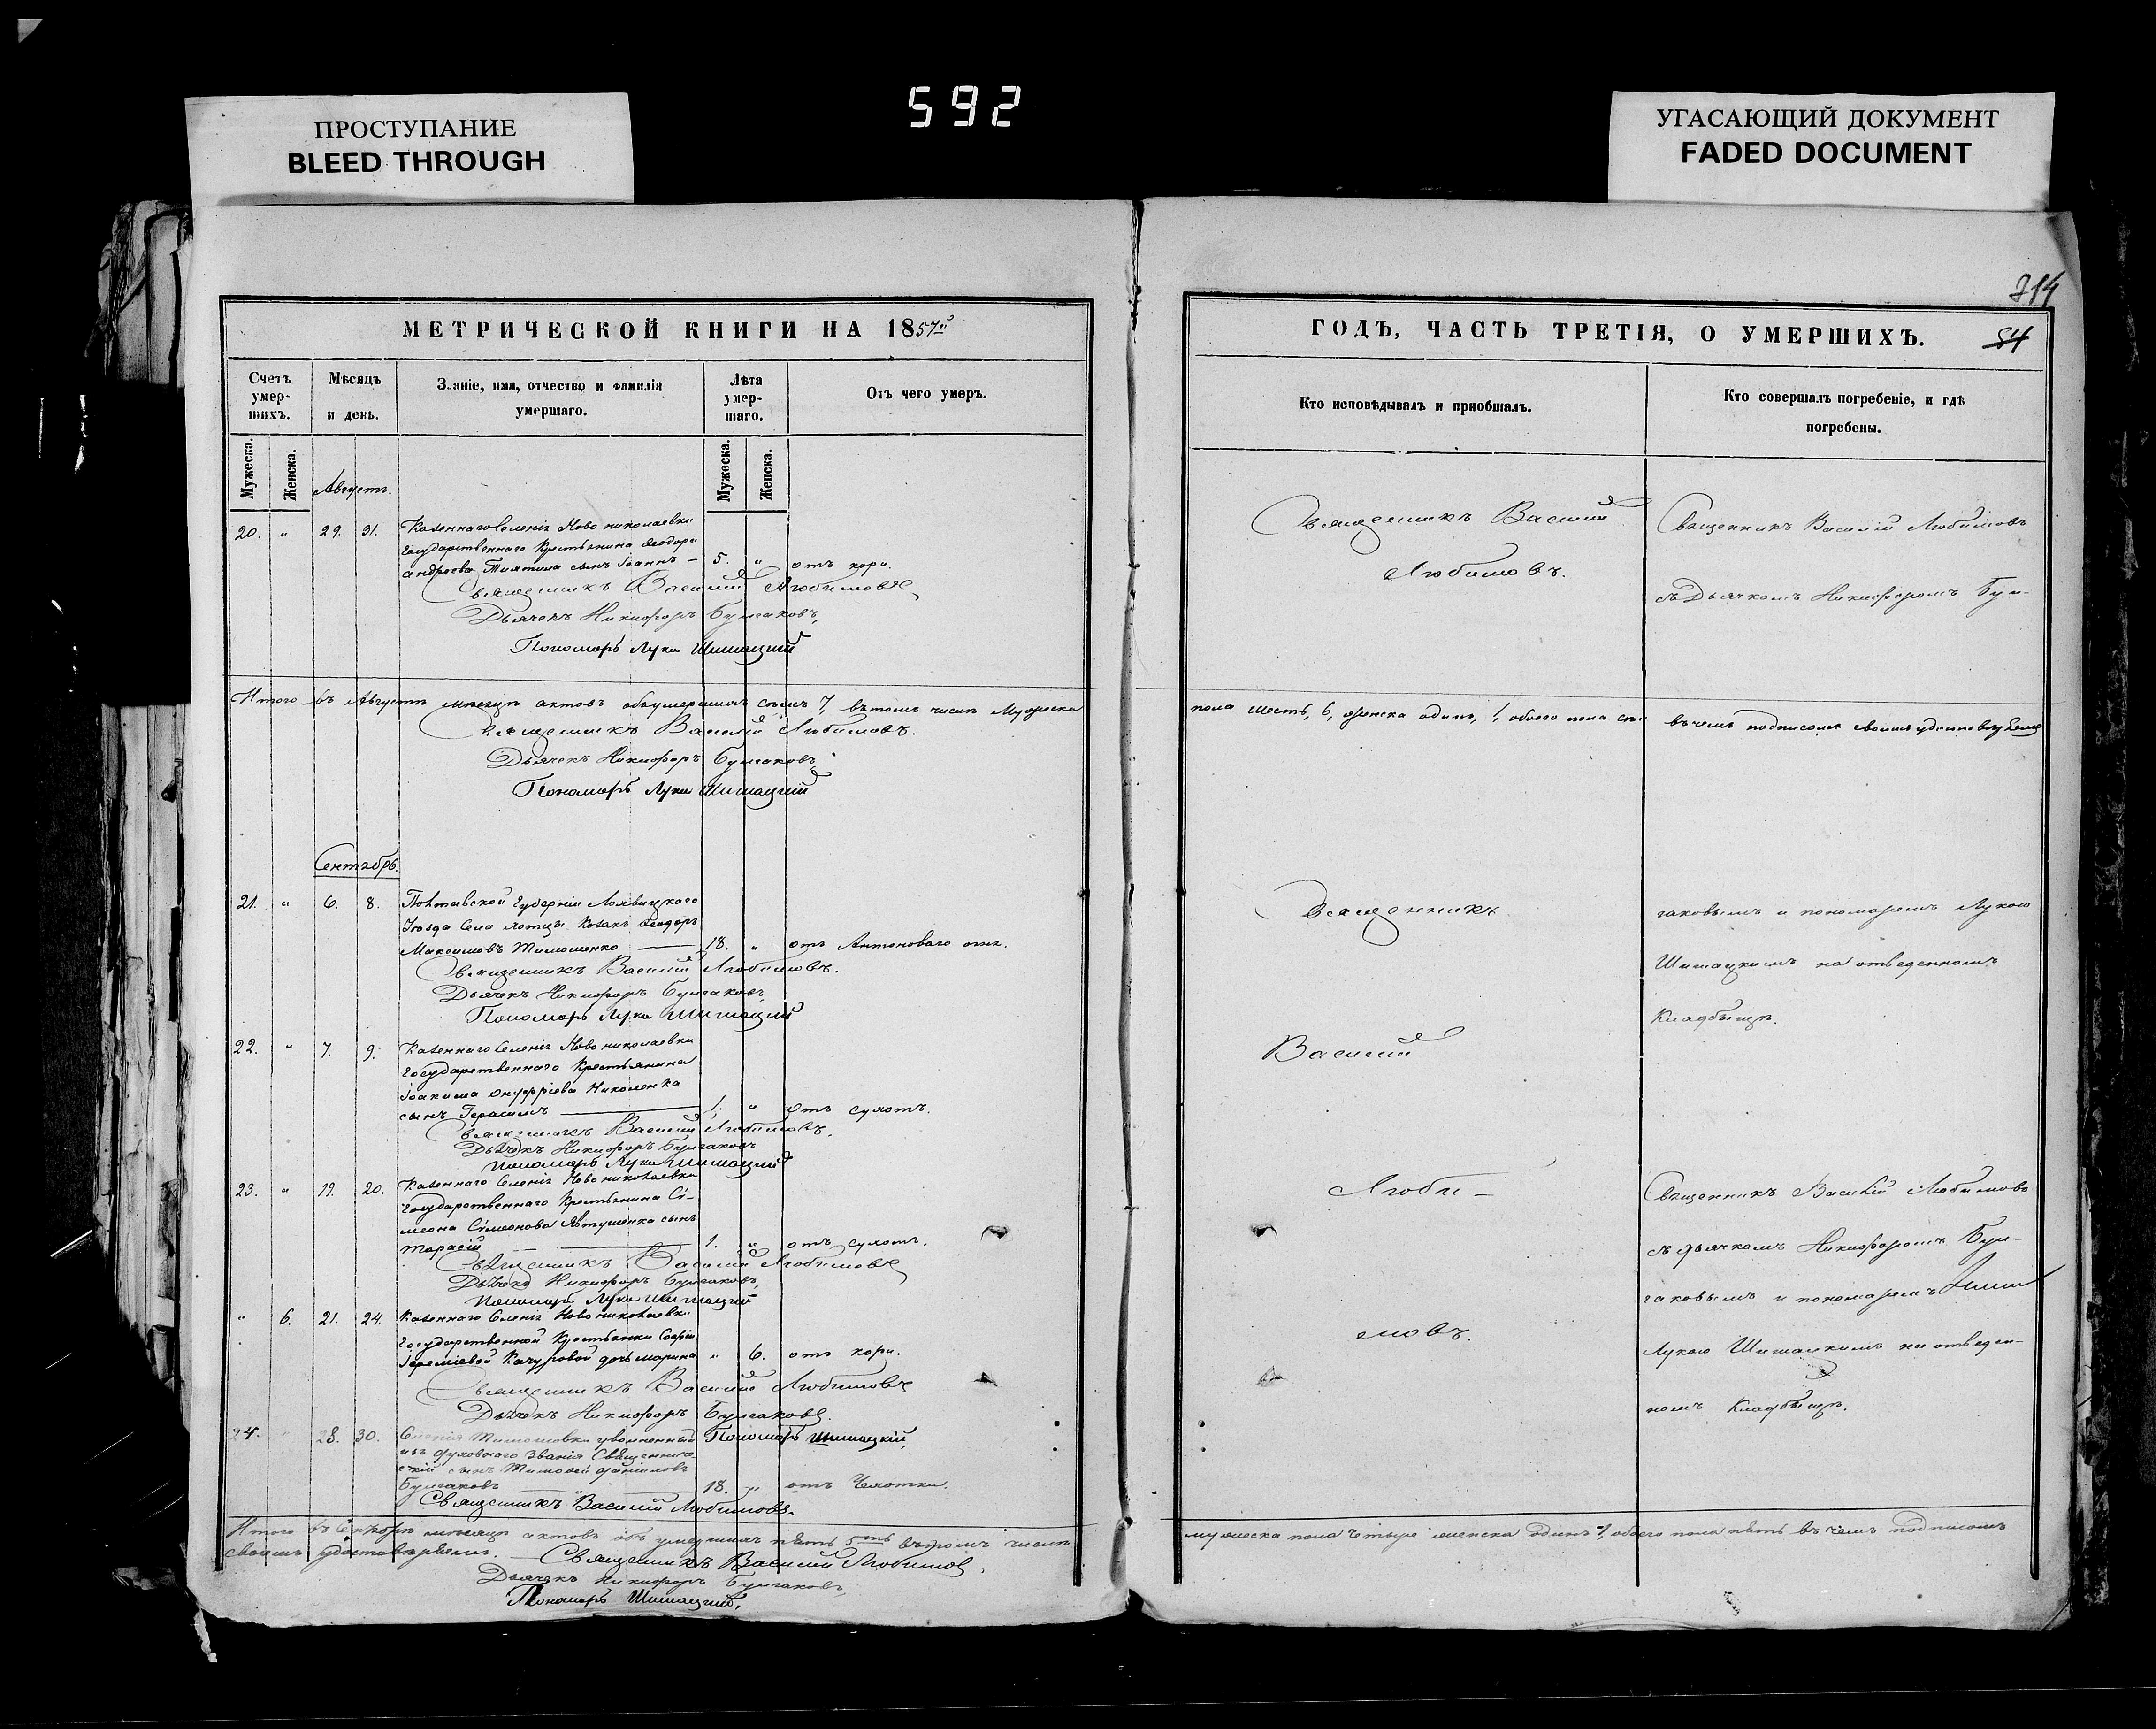 ПРОСТУПАНИЕ
BLEED THROUGH
592
УГАСАЮЩИЙ ДОКУМЕНТ
FADED DOCUMENT
МЕТРИЧЕСКОЙ КНИГИ НА 1857й
Счетъ умер-шихъ.
Мѣсяцъ и день.
Званіе, имя, отчество и фамилія умершаго.
Лѣта умер-шаго.
Отъ чего умеръ.
Мужеска.
Женска.
Мужеска.
Женска.
Августъ.
20. " 29. 31. Казеннаго Селенія Ново николаевки
Государственнаго Крестьянина Ѳеодора
Андреева сынъ Іоаннъ — 5. " отъ кори.
Священникъ Василій Любимовъ
Дьячекъ Никифоръ Булгаковъ,
Пономарь Лука Шишацкій
Итого въ Августѣ мѣсяцѣ актовъ объ умершихъ семь 7, въ томъ числѣ Мужеска
Священникъ Василій Любимовъ.
Дьячекъ Никифоръ Булгаковъ,
Пономарь Лука Шишацкій
Сентябрь.
21. " 6. 8. Полтавской Губерніи Лохвицкаго
Уѣзда Села Козакъ Ѳеодоръ
Максимовъ Тимошенко — 18. " отъ Антоноваго огня.
Священникъ Василій Любимовъ.
Дьячекъ Никифоръ Булгаковъ,
Пономарь Лука Шишацкій
22. " 7. 9. Казеннаго Селенія Ново николаевки
Государственнаго Крестьянина
Іоакима Онуфріева Николенка
сынъ Герасимъ — 1. " отъ сухотъ.
Священникъ Василій Любимовъ.
Дьячекъ Никифоръ Булгаковъ
Пономарь Лука Шишацкій
23. " 19. 20. Казеннаго Селенія Ново николаевки
Государственнаго Крестьянина Сѵ-
меона Сѵмеонова Явтушенка сынъ
Тарасій — 1. " отъ сухотъ.
Священникъ Василій Любимовъ
Дьячекъ Никифоръ Булгаковъ,
Пономарь Лука Шишацкій
" 6. 21. 24. Казеннаго Селенія Ново николаевки
Государственной Крестьянки Софіи
Іереміевой Качуровой дочь Марина " 6. отъ кори.
Священникъ Василій Любимовъ
Дьячекъ Никифоръ Булгаковъ.
Пономарь Шишацкій,
24. " 28. 30. Селенія Тимошовки уволненный
изъ духовнаго званія Священниче-
скій сынъ Тимофей Даніиловъ
Булгаковъ — 18. " отъ Чахотки.
Священникъ Василій Любимовъ.
Итого въ Сентябрѣ мѣсяцѣ актовъ объ умершихъ пять 5ть въ томъ числѣ
своимъ удостовѣряемъ. — Священникъ Василій Любимовъ,
Дьячекъ Никифоръ Булгаковъ,
Пономарь Шишацкій,
714
54
ГОДЪ, ЧАСТЬ ТРЕТІЯ, О УМЕРШИХЪ.
Кто исповѣдывалъ и пріобщалъ.
Кто совершалъ погребеніе, и гдѣ погребены.
Священникъ Василій
Любимовъ.
Священникъ Василій Любимовъ
съ Дьячкомъ Никифоромъ Бул-
пола шесть, 6, женска одинъ, 1, обоего пола въ чемъ подписомъ своимъ удостовѣряемъ
Священникъ
Василій
Люби-
мовъ.
гаковымъ и пономаремъ Лукою
Шишацкимъ на отведенномъ
Кладбищѣ.
Священникъ Василій Любимовъ
съ дьячкомъ Никифоромъ Бул-
гаковымъ и пономаремъ
Лукою Шишацкимъ на отведен-
номъ Кладбищѣ.
мужеска пола четыре женска одинъ 1, обоего пола пять въ чемъ подписомъ